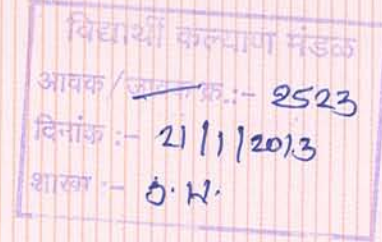 विद्यार्थी कल्याण मंडळ
आवक / जावक क्र.:- 2523
दिनांक :- 21/1/2013
शाखा :-